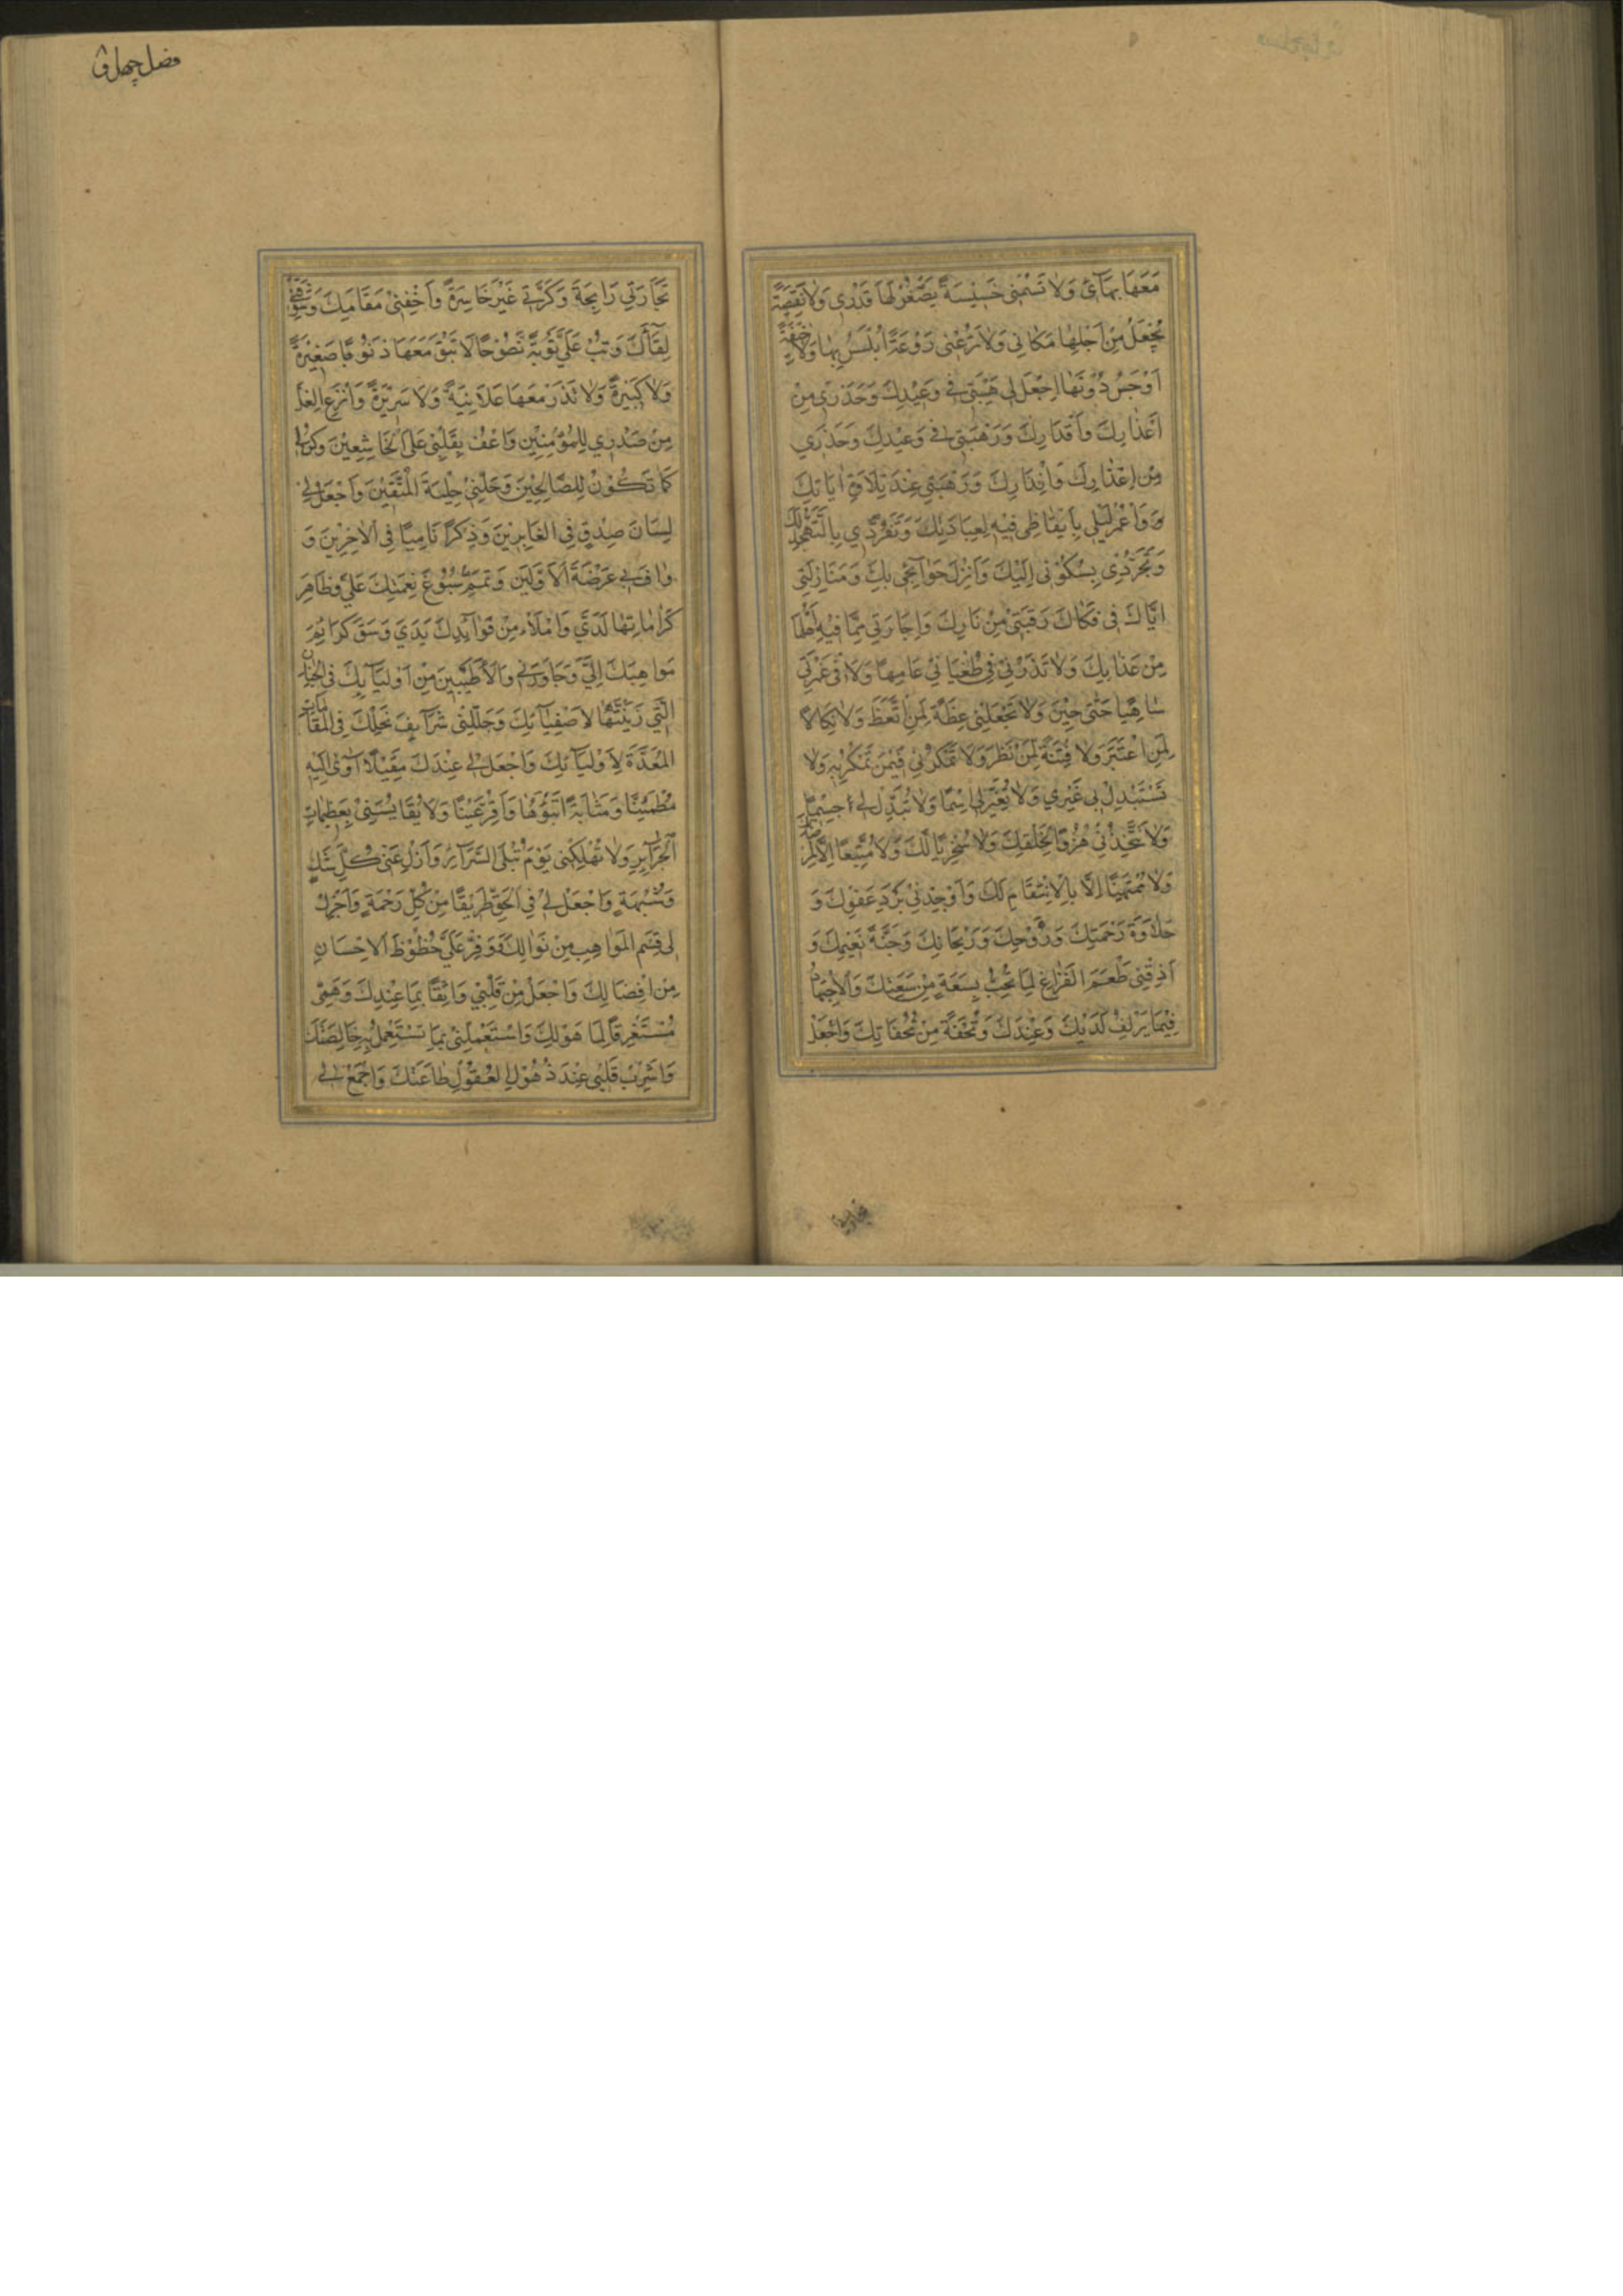 مَعَهَا بَهَآئِ وَلَا تَسُمْنِى خَسِيْسَةً يَصْغُرُ لَهَا قَدْرِى وَلَا نَقِيْصَةً
يُجْهَلُ مِنْ اَجْلِهَا مَكَانِى وَلَا تَرُعْنِى رَوْعَةً اُبْلَسُ بِهَا وَلَا خِيْفَةً
اَوْجَسُ دُوْنَهَا اِجْعَلْ لِى هَيْبَتِى فِى وَعِيْدِكَ وَحَذَرِى مِنْ
اَعْذَارِكَ وَاَقْدَارِكَ وَرَهْبَتِى فِى وَعِيْدِكَ وَحَذَرِي
مِنْ اِعْذَارِكَ وَاِنْذَارِكَ وَرَهْبَتِى عِنْدَ تِلَاوَةِ اٰيَاتِكَ
وَاعْمُرْ لَيْلِي بِاِيْقَاظِى فِيْهِ لِعِبَادَتِكَ وَتَفَرُّدِي بِالتَّهَجُّدِ لَكَ
وَتَجَرُّدِى بِسُكُوْنِى اِلَيْكَ وَاَنْزِلْ حَوَآئِجِى بِكَ وَمَنَازِلَتِى
اِيَّاكَ فِى فَكَاكِ رَقَبَتِى مِنْ نَارِكَ وَاِجَارَتِي مِمَّا فِيْهِ اَهْلُهَا
مِنْ عَذَابِكَ وَلَا تَذَرْنِى فِى طُغْيَانِى عَامِهًا وَلَا فِى غَمْرَتِى
سَاهِيًا حَتّٰى حِيْنَ وَلَا تَجْعَلْنِى عِظَةً لِمَنِ اتَّعَظَ وَلَا نَكَالًا
لِمَنِ اعْتَبَرَ وَلَا فِتْنَةً لِمَنْ نَظَرَ وَلَا تَمْكُرْ بِى فِيْمَنْ تَمْكُرُ بِهِ وَلَا
تَسْتَبْدِلْ بِى غَيْرِي وَلَا تُغَيِّرْ لِى اِسْمًا وَلَا تُبَدِّلْ لِى جِسْمًا
وَلَا تَتَّخِذْنِى هُزُوًا لِخَلْقِكَ وَلَا سُخْرِيًّا لَكَ وَلَا مُتَّبِعًا اِلَّا لِمَرْضَاتِكَ
وَلَا مُمْتَهَنًا اِلَّا بِالْاِنْتِقَامِ لَكَ وَاَوْجِدْنِى بَرْدَ عَفْوِكَ وَ
حَلَاوَةَ رَحْمَتِكَ وَرَوْحِكَ وَرَيْحَانِكَ وَجَنَّةَ نَعِيْمِكَ وَ
اَذِقْنِى طَعْمَ الْفَرَاغِ لِمَا تُحِبُّ بِسَعَةٍ مِنْ سَعَتِكَ وَالْاِجْتِهَادَ
فِيْمَا يُزْلِفُ لَدَيْكَ وَعِنْدَكَ وَتُحْفَةً مِنْ تُحْفَاتِكَ وَاجْعَلْ
فضل چهل و
تِجَارَتِي رَابِحَةً وَكَرَّتِى غَيْرَ خَاسِرَةً وَاَخِفْنِى مَقَامَكَ وَشَوِّقْنِى
لِقَآئَكَ وَتُبْ عَلَيَّ تَوْبَةً نَصُوْحًا لَا تُبْقِ مَعَهَا ذُنُوْبًا صَغِيْرَةً
وَلَا كَبِيْرَةً وَلَا تَذَرْ مَعَهَا عَلَانِيَةً وَلَا سَرِيْرَةً وَانْزِعِ الْغِلَّ
مِنْ صَدْرِي لِلْمُؤْمِنِيْنَ وَاعْفُ بِقَلْبِى عَلَى الْخَاشِعِيْنَ وَكُنْ لِى
كَمَا تَكُوْنُ لِلصَّالِحِيْنَ وَحَلِّنِى حِلْيَةَ الْمُتَّقِيْنَ وَاجْعَلْ لِى
لِسَانَ صِدْقٍ فِى الْغَابِرِيْنَ وَذِكْرًا نَامِيًا فِى الْاٰخِرِيْنَ وَ
وَافِ بِى عَرْصَةَ الْاَوَّلِيْنَ وَتَمِّمْ سُبُوْغَ نِعْمَتِكَ عَلَيَّ وَظَاهِرْ
كَرَامَاتِهَا لَدَيَّ وَامْلَأْ مِنْ فَوَآئِدِكَ يَدَيَّ وَسُقْ كَرَائِمَ
مَوَاهِبِكَ اِلَيَّ وَجَاوِرْنِى وَالْاَطْيَبِيْنَ مِنْ اَوْلِيَآئِكَ فِى الْجِنَانِ
الَّتِي زَيَّنْتَهَا لِاَصْفِيَآئِكَ وَجَلِّلْنِى شَرَآئِفَ نِحَلِكَ فِى الْمَقَامَاتِ
الْمُعَدَّةِ لِاَوْلِيَآئِكَ وَاجْعَلْ لِى عِنْدَكَ مَقِيْلًا اٰوِى اِلَيْهِ
مُطْمَئِنًّا وَمَثَابَةً اَتَبَوَّؤُهَا وَاَقِرُّ عَيْنًا وَلَا تُقَايِسْنِى بِعَظِيْمَاتِ
الْجَرَآئِرِ وَلَا تُهْلِكْنِى يَوْمَ تُبْلَى السَّرَآئِرُ وَاَزِلْ عَنِّى كُلَّ شَكٍّ
وَشُبْهَةٍ وَاجْعَلْ لِى فِى الْحَقِّ طَرِيْقًا مِنْ كُلِّ رَحْمَةٍ وَاَجْزِلْ
لِى قِسَمَ الْمَوَاهِبِ مِنْ نَوَالِكَ وَوَفِّرْ عَلَيَّ حُظُوْظَ الْاِحْسَانِ
مِنْ اِفْضَالِكَ وَاجْعَلْ مِنْ قَلْبِي وَاثِقًا بِمَا عِنْدِكَ وَهَمِّى
مُسْتَغْرِقًا لِمَا هَوْلِكَ وَاسْتَعْمِلْنِى بِمَا تَسْتَعْمِلُ بِهِ خَالِصَتَكَ
وَاَشْرِبْ قَلْبِى عِنْدَ ذُهُوْلِ الْعُقُوْلِ طَاعَتَكَ وَاجْمَعْ لِى